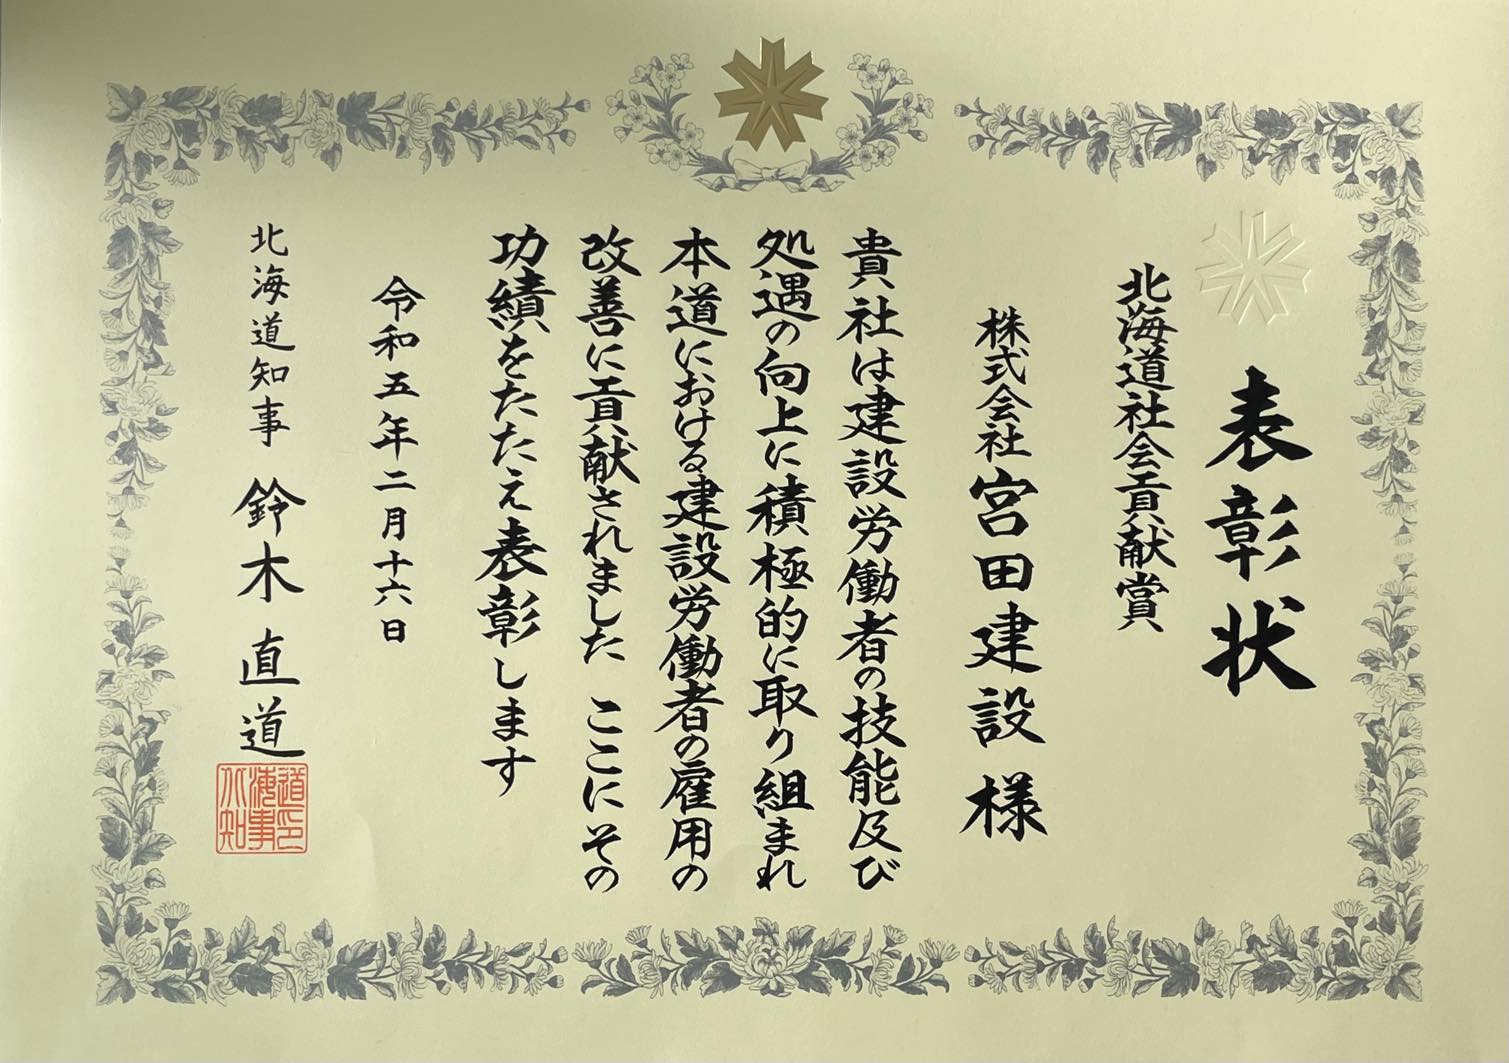 表彰状
北海道社会貢献賞
株式会社宮田建設 様
貴社は建設労働者の技能及び
処遇の向上に積極的に取り組まれ
本道における建設労働者の雇用の
改善に貢献されました ここにその
功績をたたえ表彰します
令和五年二月十六日
北海道知事 鈴木直道
北海道知事印